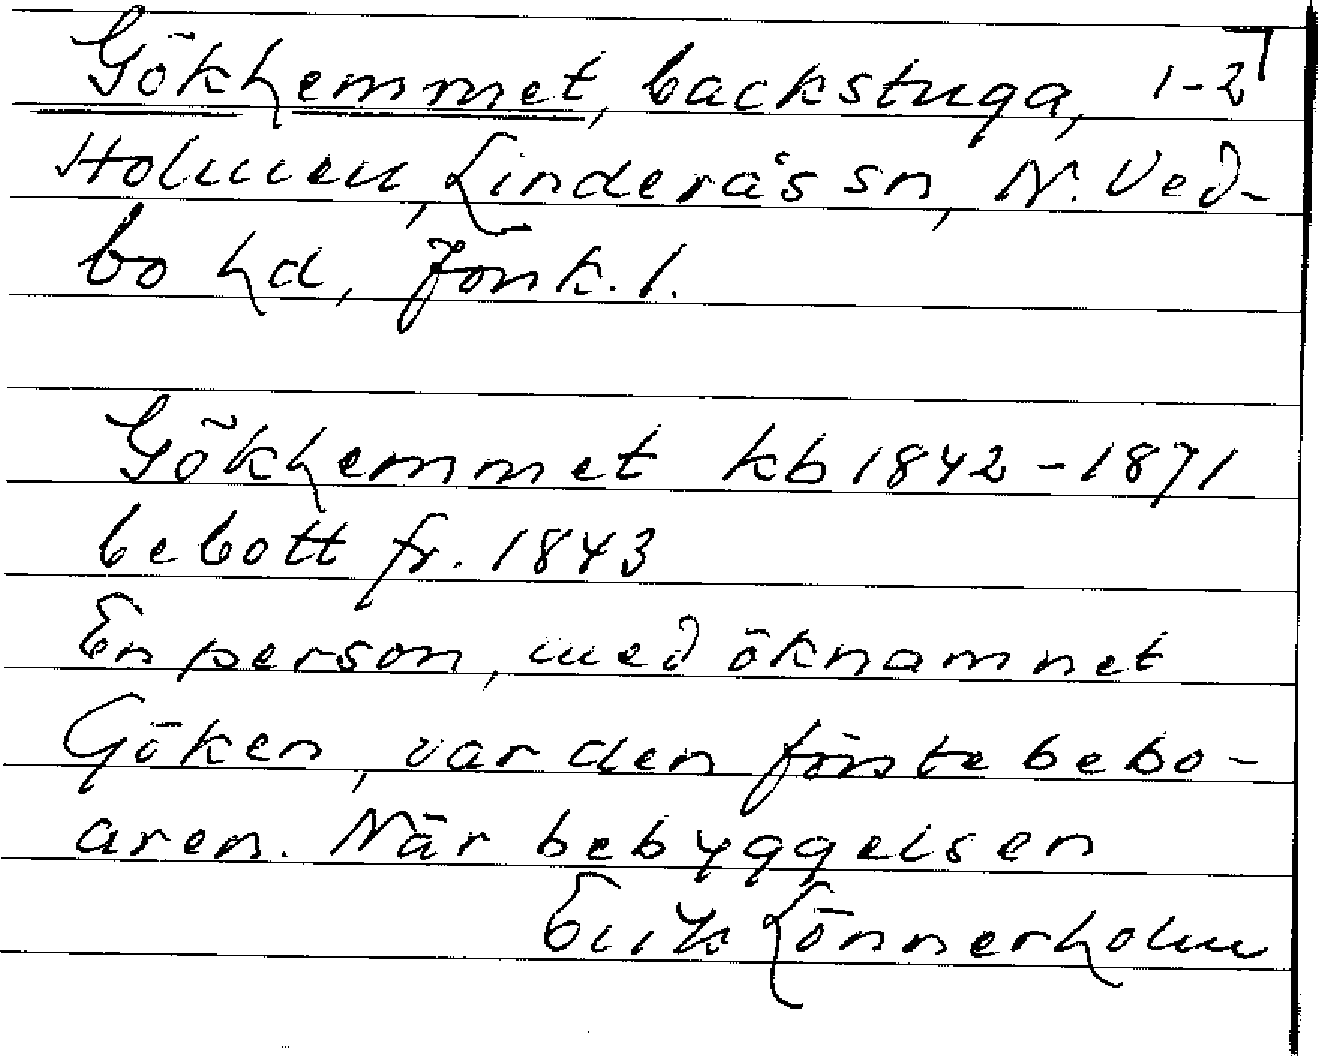 Gökhemmet, backstuga, 1-2
Holmen, Linderås sn, N. Ved-
bo hd, Jönk. l.
Gökhemmet kb 1842-1871
bebott fr. 1843
En person, med öknamnet
Göken, var den förste bebo-
aren. När bebyggelsen
Erik Lönnerholm